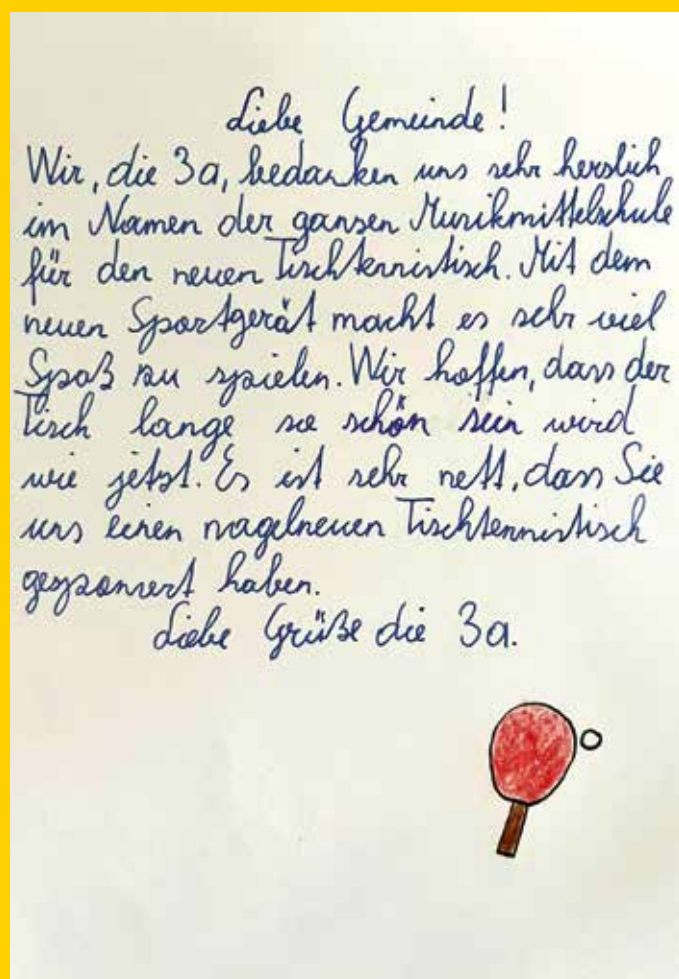 Liebe Gemeinde!
Wir, die 3a, bedanken uns sehr herzlich
im Namen der ganzen Musikmittelschule
für den neuen Tischtennistisch. Mit dem
neuen Sportgerät macht es sehr viel
Spaß zu spielen. Wir hoffen, dass der
Tisch lange so schön sein wird
wie jetzt. Es ist sehr nett, dass Sie
uns einen nagelneuen Tischtennistisch
gesponsert haben.
Liebe Grüße die 3a.